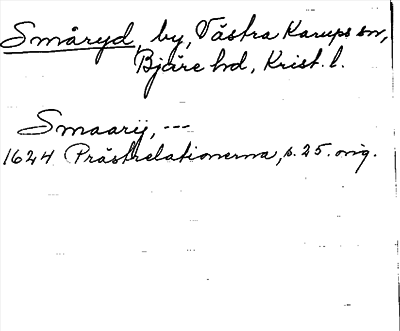 Småryd, by, Västra Karups sn,
Bjäre hd, Krist. l.
Smaarÿ, ---
1624 Prästrelationerna, s. 25. orig.